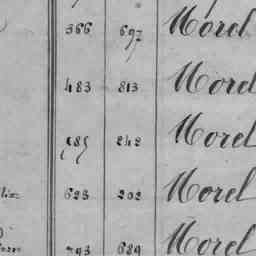 366 697 Morel
483 813 Morel
585 242 Morel
623 202 Morel
793 689 Morel